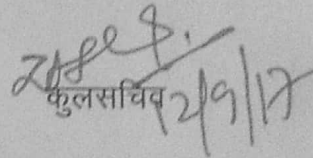 कुलसचिव
12/9/17